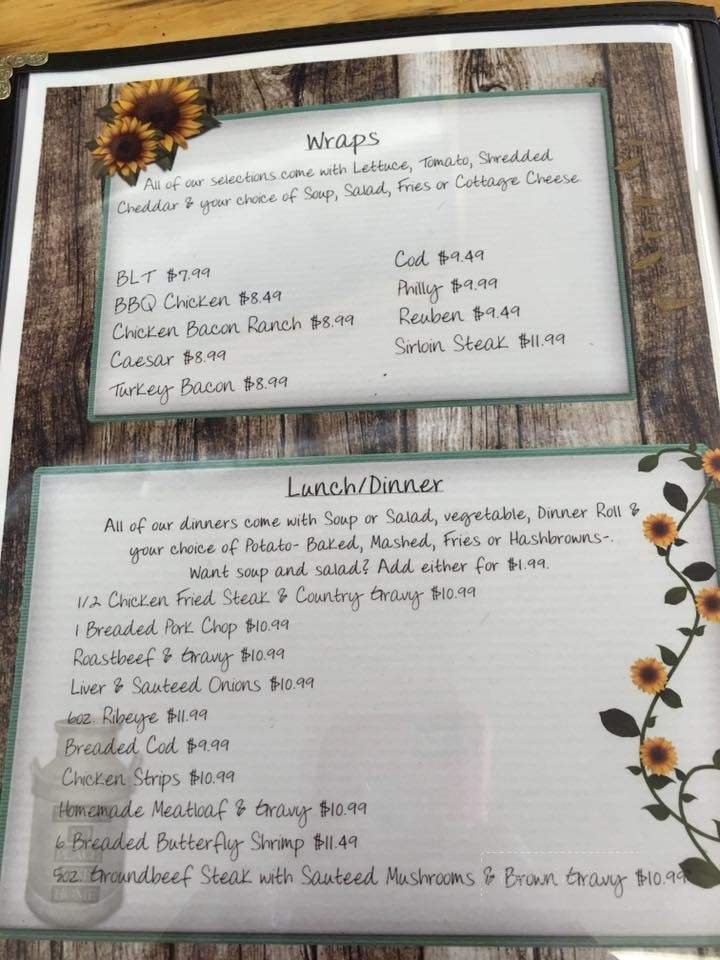 Wraps
All of our selections come with Lettuce, Tomato, Shredded
Cheddar & your choice of Soup, Salad, Fries or Cottage Cheese
BLT $7.99
BBQ Chicken $8.49
Chicken Bacon Ranch $8.99
Caesar $8.99
Turkey Bacon $8.99
Cod $9.49
Philly $9.99
Reuben $9.49
Sirloin Steak $11.99
Lunch/Dinner
All of our dinners come with Soup or Salad, vegetable, Dinner Roll &
your choice of Potato- Baked, Mashed, Fries or Hashbrowns-.
Want soup and salad? Add either for $1.99.
1/2 Chicken Fried Steak & Country Gravy $10.99
1 Breaded Pork Chop $10.99
Roastbeef & Gravy $10.99
Liver & Sauteed Onions $10.99
6oz. Ribeye $11.99
Breaded Cod $9.99
Chicken Strips $10.99
Homemade Meatloaf & Gravy $10.99
6 Breaded Butterfly Shrimp $11.49
8oz. Groundbeef Steak with Sauteed Mushrooms & Brown Gravy $10.99